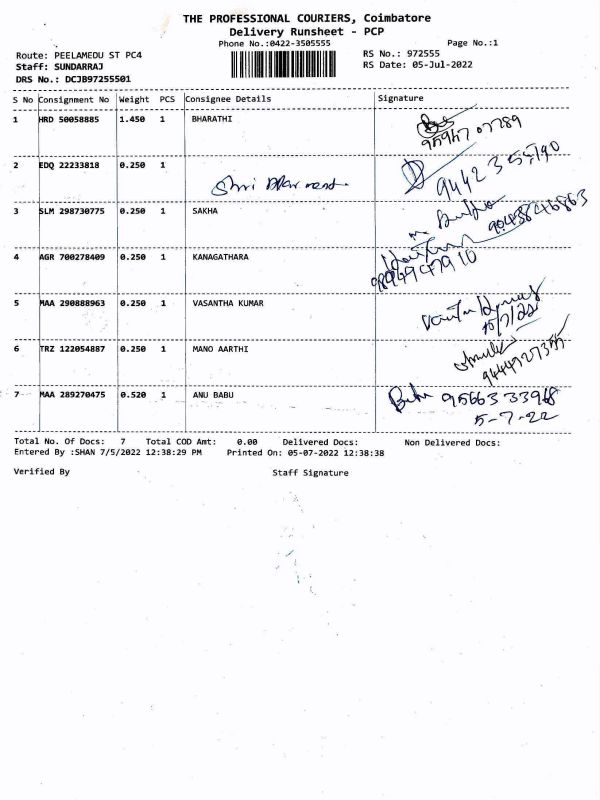 THE PROFESSIONAL COURIERS, Coimbatore
Delivery Runsheet - PCP
Phone No.:0422-3505555
Page No.:1
Route: PEELAMEDU ST PC4
RS No.: 972555
Staff: SUNDARRAJ
RS Date: 05-Jul-2022
DRS No.: DCJB97255501
S No Consignment No Weight PCS Consignee Details Signature
1 HRD 50058885 1.450 1 BHARATHI
2 EDQ 22233818 0.250 1
3 SLM 298730775 0.250 1 SAKHA
4 AGR 700278409 0.250 1 KANAGATHARA
5 MAA 290888963 0.250 1 VASANTHA KUMAR
6 TRZ 122054887 0.250 1 MANO AARTHI
7 MAA 289270475 0.520 1 ANU BABU 95663 33968
5-7-22
Total No. Of Docs: 7 Total COD Amt: 0.00 Delivered Docs: Non Delivered Docs:
Entered By :SHAN 7/5/2022 12:38:29 PM Printed On: 05-07-2022 12:38:38
Verified By Staff Signature